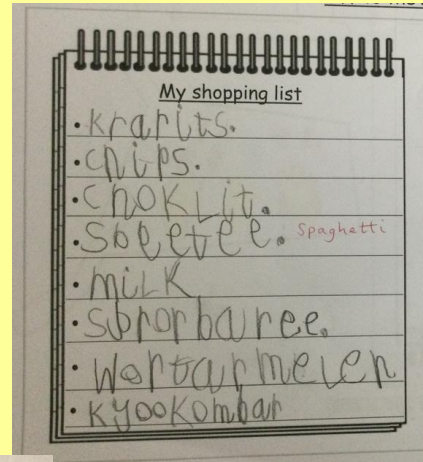 My shopping list
• krarits.
• chips.
• choklit.
• sbeetee. Spaghetti
• milk
• sbrorbaree.
• wortarmelen
• kyookombar